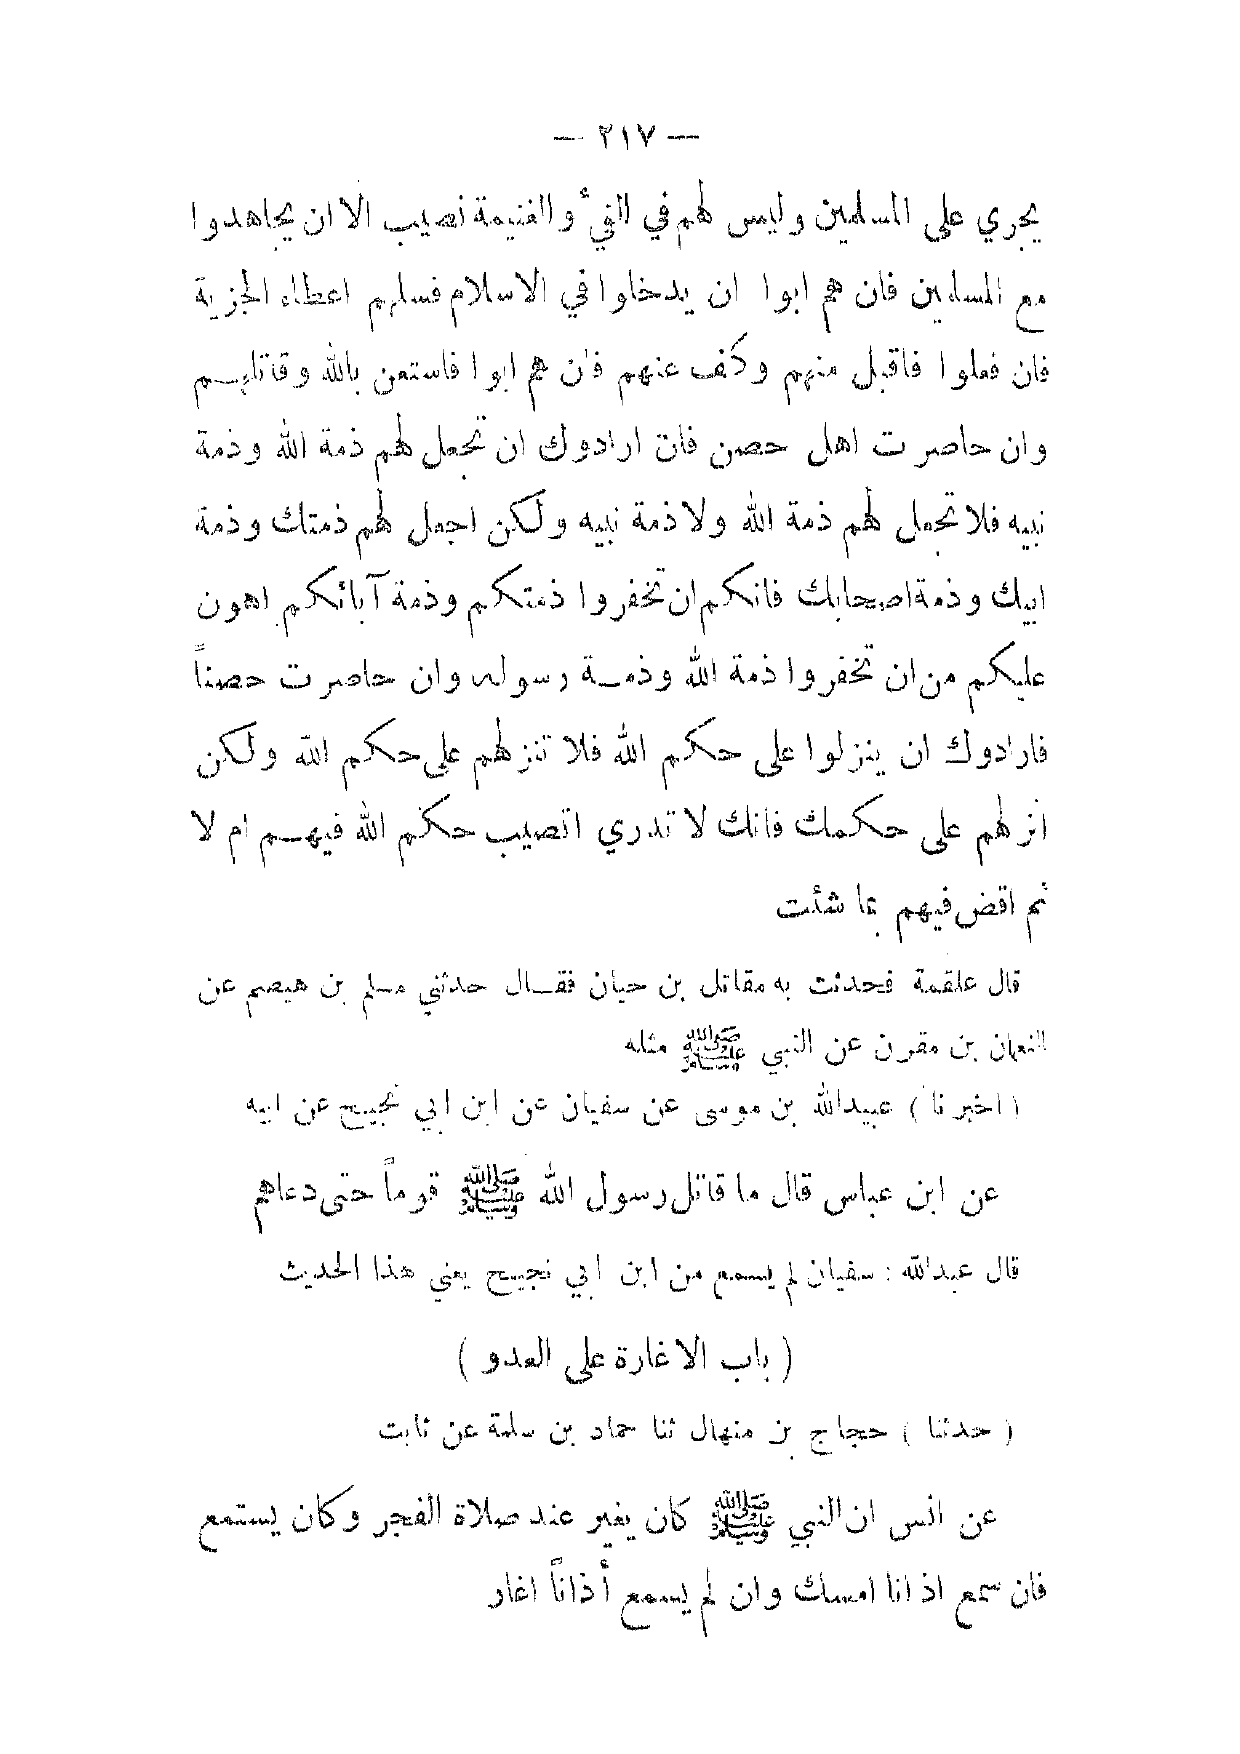 — ٢١٧ —
يجري على المسلمين وليس لهم في الفيء والغنيمة نصيب الا ان يجاهدوا
مع المسلمين فان هم ابوا ان يدخلوا في الاسلام فسلهم اعطاء الجزية
فان فعلوا فاقبل منهم وكف عنهم فان هم ابوا فاستعن بالله وقاتلهم
وان حاصرت اهل حصن فان ارادوك ان تجعل لهم ذمة الله وذمة
نبيه فلا تجعل لهم ذمة الله ولا ذمة نبيه ولكن اجعل لهم ذمتك وذمة
ابيك وذمة اصحابك فانكم ان تخفروا ذمتكم وذمة آبائكم اهون
عليكم من ان تخفروا ذمة الله وذمة رسوله وان حاصرت حصناً
فارادوك ان ينزلوا على حكم الله فلا تنزلهم على حكم الله ولكن
انزلهم على حكمك فانك لا تدري اتصيب حكم الله فيهم ام لا
ثم اقض فيهم بما شئت
قال علقمة فحدثت به مقاتل بن حيان فقال حدثني مسلم بن هيصم عن
النعمان بن مقرن عن النبي ﷺ مثله
( اخبرنا ) عبيدالله بن موسى عن سفيان عن ابن ابي نجيح عن ابيه
عن ابن عباس قال ما قاتل رسول الله ﷺ قوماً حتى دعاهم
قال عبدالله : سفيان لم يسمع من ابن ابي نجيح يعني هذا الحديث
( باب الاغارة على العدو )
( حدثنا ) حجاج بن منهال ثنا حماد بن سلمة عن ثابت
عن انس ان النبي ﷺ كان يغير عند صلاة الفجر وكان يستمع
فان سمع اذانا امسك وان لم يسمع أذاناً اغار